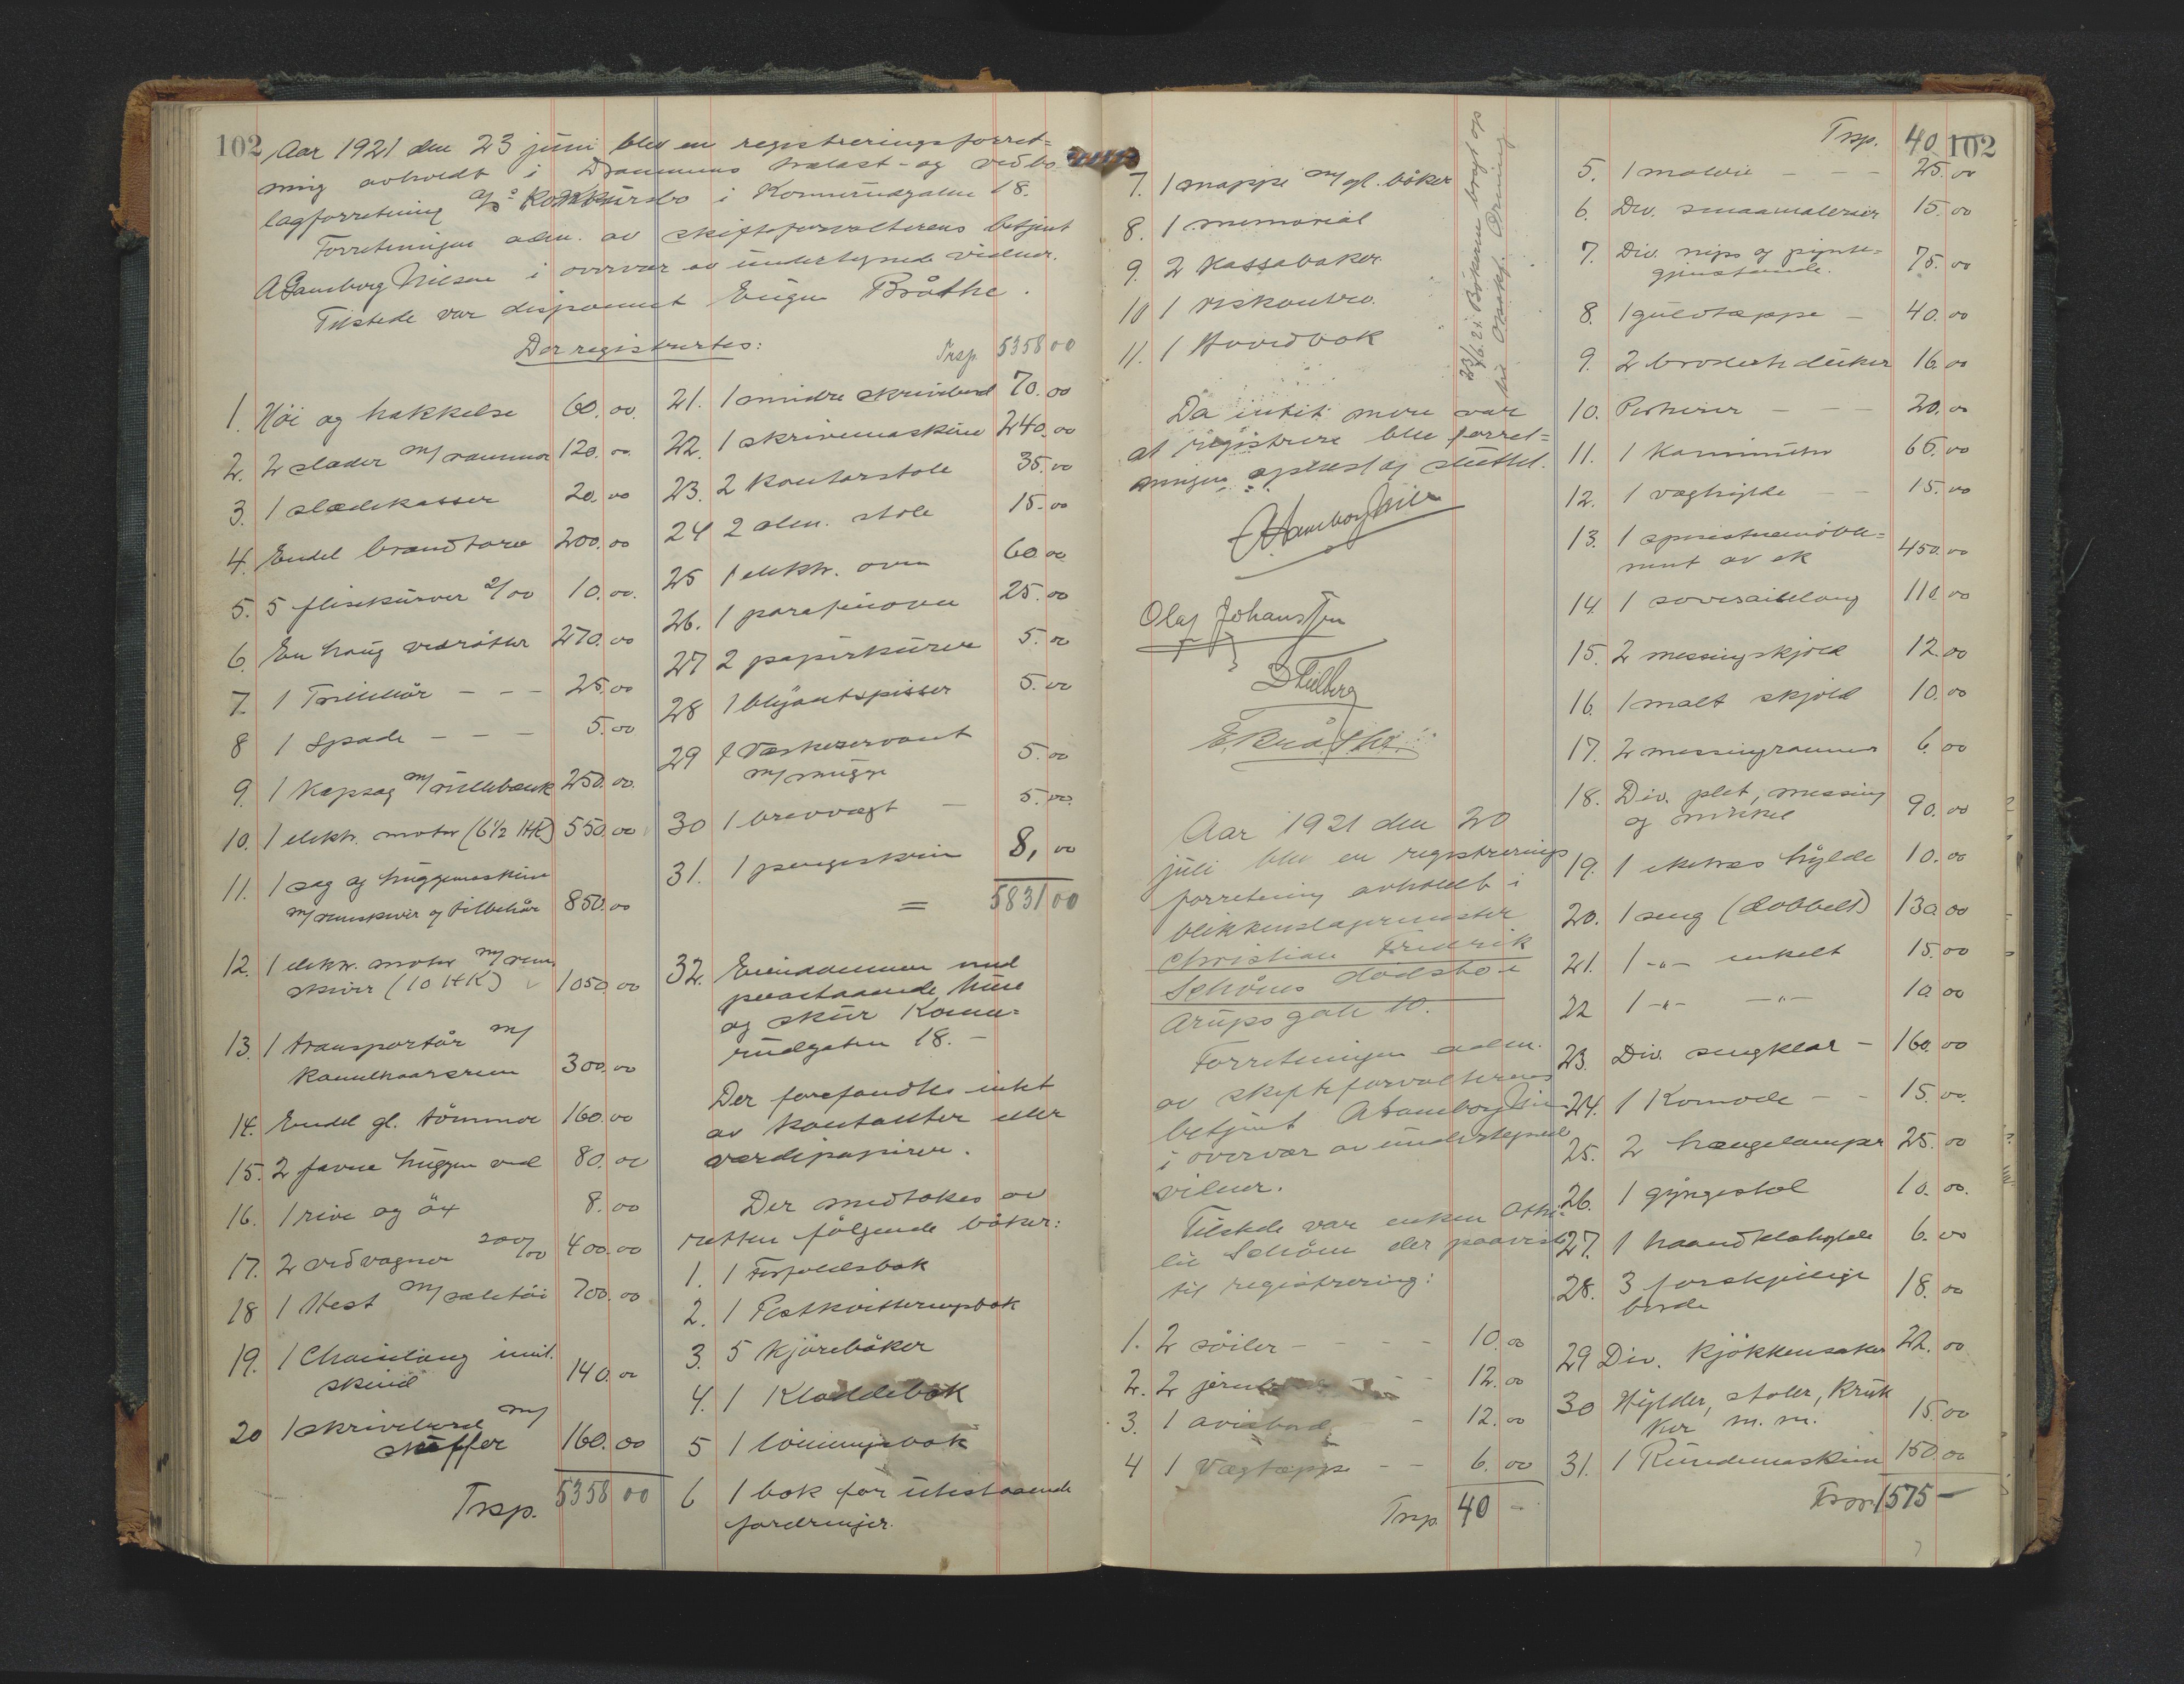 102
Aar 1921 den 23 juni blev en registreringsforret=
ning avholdt i Drammens trælast- og vedbo
lagforretning A/S' Konkursbo i Konnerudgaten 18.
Forretningen adm. av skifteforvalterens betjent
A Hamborg Nilsen i overvær av undertegnede vidner.
Tilstede var disponent Eugen Bråthe.
Der registrertes:
1. Høi og hakkelse 60.00
2. 2 slæder m/ rammer 120.00
3. 1 slædekasser 20.00
4. Endel brandtorv 200.00
5. 5 flisekurver 2/00 10.00.
6. En haug vedrøtter 270.00
7. 1 Trillebår - - - 25.00
8 1 Spade - - - 5.00
9. 1 Kapsag m/ rullebænk 250.00.
10. 1 elektr. motor (6 1/2 HK) 550.00
11. 1 sag og huggemaskine
m/ remskiver og tilbehør 850.00
12. 1 elektr. motor m/ rem
skiver (10 HK) 1050.00
13. 1 transportør m/
Kamelhaarsrem 300.00
14. Endel gl. tømmer 160.00
15. 2 favne huggen ved 80.00
16. 1 rive og øx 8.00
17. 2 vedvogner 200/00 400.00
18 1 Hest m/ seletøi 700.00
19. 1 Chaiselong imit.
skind 140.00
20 1 skrivebord m/
skuffer 160.00
Trsp. 5358 00
Trsp. 5358 00
21. 1 mindre skrivebord 70.00
22. 1 skrivemaskine 240.00
23. 2 Kontorstole 35.00
24 2 alm. stole 15.00
25 1 elektr. ovn 60 00
26. 1 parafinovn 25.00
27 2 papirkurver 5.00
28 1 blyantspisser 5.00
29 1 Vaskeservant
m/ mugge 5.00
30 1 brevvegt - 5.00.
31. 1 pengeskrin 8,00
= 5831 00
32. Eiendommen med
paastaaende huse
og skur Konne=
rudgaten 18. -
Der forefandtes intet
av kontanter eller
værdipapirer.
Der medtokes av
retten følgende bøker:
1. 1 Forfaldsbok
2. 1 Postkvitteringsbok
3. 5 Kjørebøker
4. 1 Kladdebok
5 1 lønningsbok
6 1 bok for utestaaende
fordringer.
7. 1 mappe m/ gl. bøker
8. 1 memorial
9. 2 Kassabøker
10 1 Diskontro.
11. 1 Hovedbok
23/6. 21. Bøkerne bragt op
til
Da intet mere var
at registrere blev forret=
ningen oplæst og sluttet.
A Hamborg Nils
Olaf Johanssen
E. Bråthe.
Aar 1921 den 20
juli blev en registrerings
forretning avholdt i
blikkenslagermester
Christian Fredrik
Schøns dødsbo i
Arups gate 10.
Forretningen adm.
av skifteforvalterens
betjent A Hamborg Nils
i overvær av undertegnede
vidner.
Tilstede var enken Otti=
lie Schøn der paaviste
til registrering:
1. 2 søiler - - - - 10.00
2. 2 12.00
3. 1 avisbord - 12.00
4 1 Vægtæppe - - 6.00
Trsp. 40 -
Trsp. 40 102
5. 1 maleri - - - 25.00
6. Div. smaamalerier 15.00
7. Div. nips og pynte=
gjenstande. 75.00
8. 1 gulvtæppe - 40.00
9. 2 broderte duker 16.00
10. Portierer - - - 20.00
11. 1 Kaminuhr 65.00
12. 1 væghylde 15.00
13. 1 spisestuemøble=
ment av ek 450.00
14. 1 sovesaiselong 110.00
15. 2 messingskjold 12.00
16. 1 malt skjold 10.00
17. 2 messingrammer 6.00
18. Div. plet, messing
og nikkel 90.00
19. 1 eketræs hylde 10.00
20. 1 seng (dobbelt) 130.00
21. 1 -"- enkelt 15.00
22 1 -"- -"- 10 00
23. Div. sengklær - 160.00
24. 1 Komode - - 15.00.
25. 2 hængelamper 25.00
26. 1 gyngestol 10.00.
27. 1 haandklæhylde 6.00
28. 3 forskjellige
borde 18.00
29 Div. Kjøkkensaker 22.00
30 Hylder, stoler, Kruk
ker m.m. 15.00
31. 1 Rundemaskin 150.00
Trsp. 1575 -